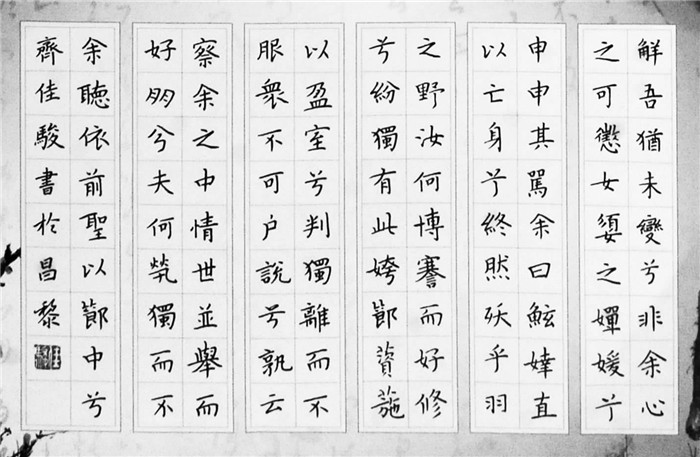 觧吾猶未變兮非余心
之可懲女媭之嬋媛兮
申申其罵余曰鮌婞直
以亡身兮終然殀乎羽
之野汝何博謇而好修
兮紛獨有此姱節薋葹
以盈室兮判獨離而不
服衆不可户說兮孰云
察余之中情世並舉而
好朋兮夫何煢獨而不
余聽依前聖以節中兮
齊佳駿書於昌黎